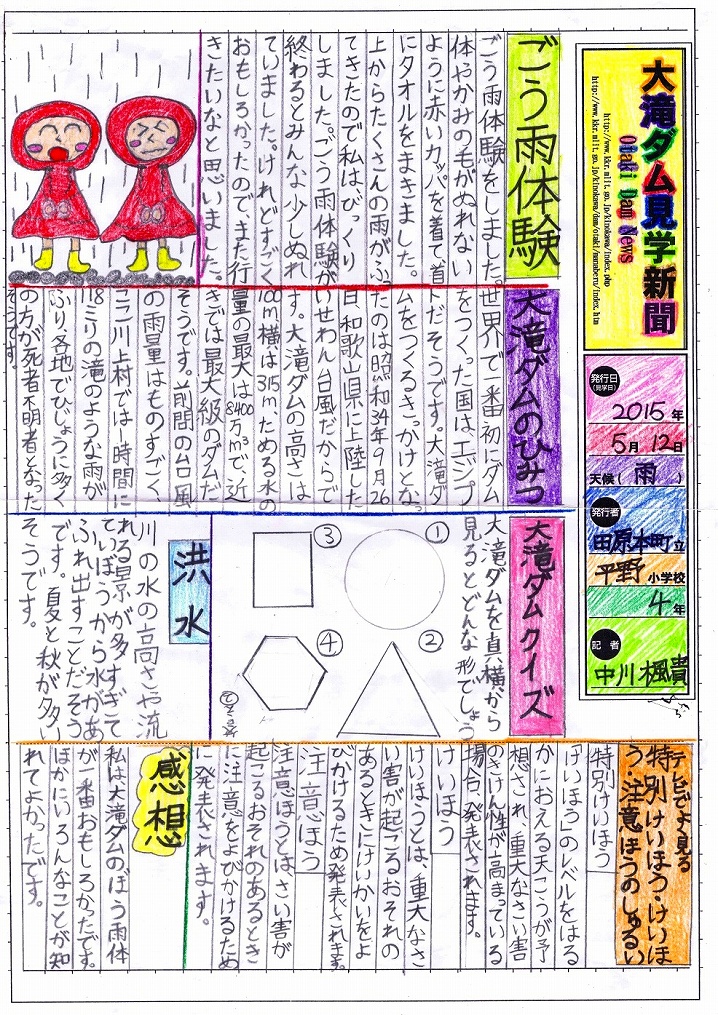 大滝ダム見学新聞
Otaki Dam News
http://www.kkr.mlit.go.jp/kinokawa/index.php
http://www.kkr.mlit.go.jp/kinokawa/dam/otaki/manaberu/index.htm
発行日
(見学日)
2015年
5月12日
天候(雨)
発行者
田原本町立
平野小学校
4年
記者
中川楓貴
ごう雨体験
ごう雨体験をしました。
体やかみの毛がぬれない
ように赤いカッパを着て首
にタオルをまきました。
上からたくさんの雨がふっ
てきたので私はびっくり
しました。ごう雨体験が
終わるとみんな少しぬれ
ていました。けれどすごく
おもしろかったので、また行
きたいなと思いました。
大滝ダムのひみつ
世界で一番初にダム
をつくった国は、エジプ
トだそうです。大滝ダ
ムをつくるきっかけとなっ
たのは昭和34年9月26
日、和歌山県に上陸した
いせわん台風だからで
す。大滝ダムの高さは
100m、横は315m、ためる水の
量の最大は8400万m³で、近
きでは最大級のダムだ
そうです。前問の台風
の雨量はものすごく、
ここ川上村では一時間に
118ミリの滝のような雨が
ふり、各地でひじょうに多く
の方が死者不明者となった
そうです。
大滝ダムクイズ
大滝ダムを真横から
見るとどんな形でしょう
①
②
③
④
答え②
洪水
川の水の高さや流
れる景が多すぎて
ていぼうから水があ
ふれ出すことだそう
です。夏と秋が多い
そうです。
テレビでよく見る
特別けいほう・けいほ
う・注意ほうのしゅるい
特別けいほう
「けいほう」のレベルをはる
かにおえる天こうが予
想され、重大なさい害
のきけん性が高まっている
場合、発表されます。
けいほう
けいほうとは、重大なさ
い害が起こるおそれの
あるときにけいかいをよ
びかけるため発表されます。
注意ほう
注意ほうとはさい害が
起こるおそれのあるとき
に注意をよびかけるため
に発表されます。
感想
私は大滝ダムのぼう雨体
が一番おもしろかったです。
ほかにいろんなことが知
れてよかったです。